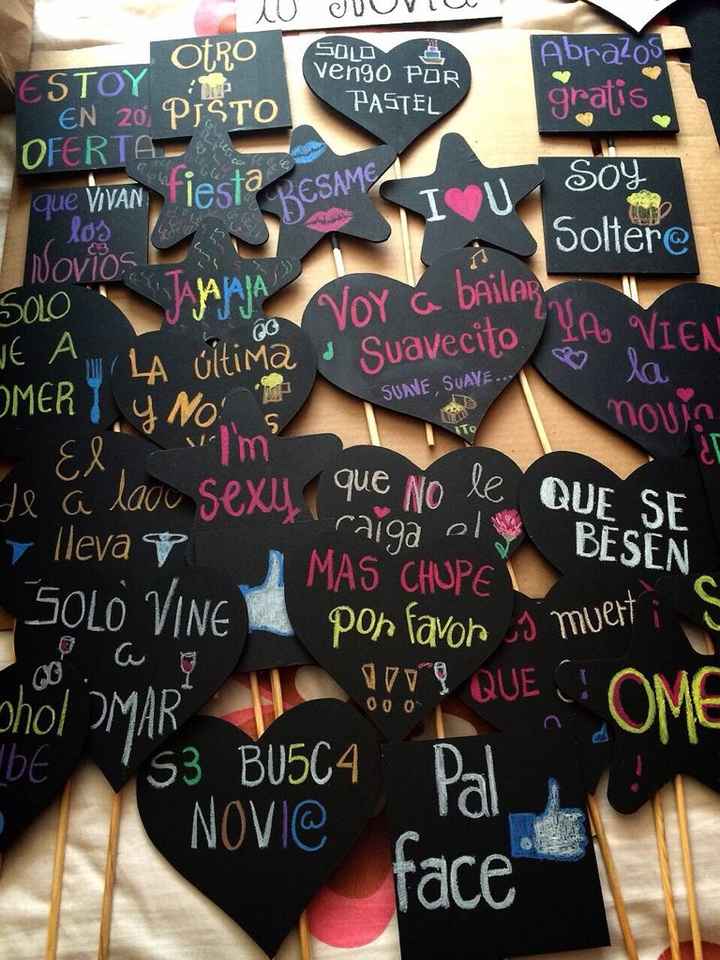 Novia
ESTOY
EN 20%
OFERTA
OTRO
PISTO
SOLO
vengo POR
PASTEL
Abrazos
gratis
que VIVAN
los
Novios
fiesta
BESAME
I U
SOY
Solter@
JAJAJAJA
SOLO
A
COMER
LA última
y NOS
VOY a bailar
Suavecito
SUAVE, SUAVE...
YA VIENE
la
novia
El
de a lado
lleva
I'm
sexy
que NO le
caiga el
QUE SE
BESEN
SOLO VINE
a
TOMAR
MAS CHUPE
por favor
!!!
muert
QUE
OME
!
S3 BU5C4
NOVI@
Pal
face